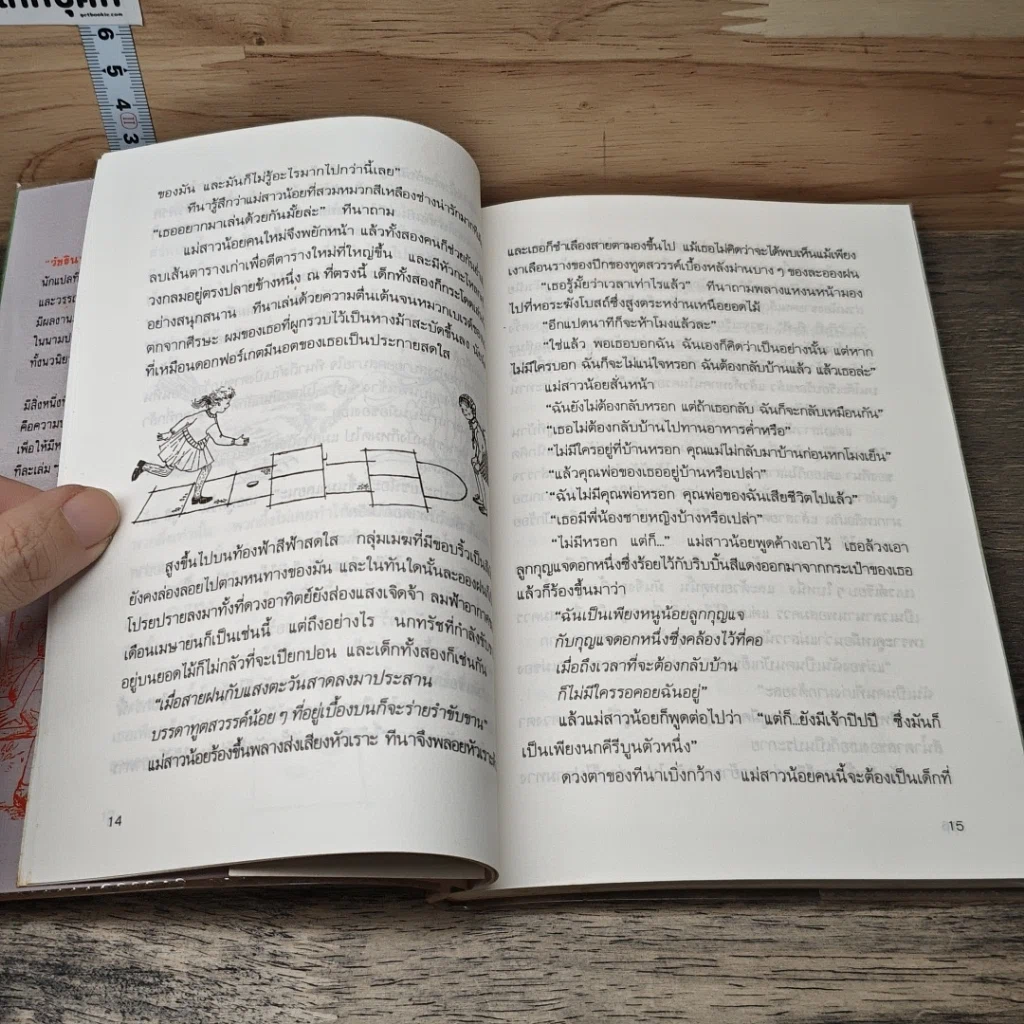 getbookie.com
6
5
4
3
"วัชริน
นักแปลที่
และวรร
มีผลงาน
ในนามป
ทั้งนวนิย
มีสิ่งหนึ่งที่
คือความ
เพื่อให้มีห
ทีละเล่ม "
ของมัน และมันก็ไม่รู้อะไรมากไปกว่านี้เลย"
ทีน่ารู้สึกว่าแม่สาวน้อยที่สวมหมวกสีเหลืองช่างน่ารัก
"เธออยากมาเล่นด้วยกันมั้ยล่ะ" ทีน่าถาม
แม่สาวน้อยคนใหม่จึงพยักหน้า แล้วทั้งสองคนก็ช่วยกัน
ลบเส้นตารางเก่าเพื่อตีตารางใหม่ที่ใหญ่ขึ้น และมีหัวกะโหลก
วงกลมอยู่ตรงปลายข้างหนึ่ง ณ ที่ตรงนี้ เด็กทั้งสองก็กระโดด
อย่างสนุกสนาน ทีน่าเล่นด้วยความตื่นเต้นจนหมวกเบเรต์
ตกจากศีรษะ ผมของเธอที่ผูกรวบไว้เป็นหางม้าสะบัดขึ้นลง
ที่เหมือนดอกฟอร์เกตมีนอตของเธอเป็นประกายสดใส
สูงขึ้นไปบนท้องฟ้าสีฟ้าสดใส กลุ่มเมฆที่มีขอบริ้วเป็น
ยังคงล่องลอยไปตามหนทางของมัน และในทันใดนั้นละอองฝน
โปรยปรายลงมาทั้งที่ดวงอาทิตย์ยังส่องแสงเจิดจ้า ลมฟ้าอากาศ
เดือนเมษายนก็เป็นเช่นนี้ แต่ถึงอย่างไร นกทรัชที่กำลังขับ
อยู่บนยอดไม้ก็ไม่กลัวที่จะเปียกปอน และเด็กทั้งสองก็เช่นกัน
"เมื่อสายฝนกับแสงตะวันสาดลงมาประสาน
บรรดาทูตสวรรค์น้อย ๆ ที่อยู่เบื้องบนก็จะร่ายรำขับขาน"
แม่สาวน้อยร้องขึ้นพลางส่งเสียงหัวเราะ ทีน่าจึงพลอยหัวเราะ
14
และเธอก็ชำเลืองสายตามองขึ้นไป แม้เธอไม่คิดว่าจะได้พบเห็นแม้เพียง
เงาเลือนรางของปีกของทูตสวรรค์เบื้องหลังม่านบาง ๆ ของละอองฝน
"เธอรู้มั้ยว่าเวลาเท่าไรแล้ว" ทีน่าถามพลางแหงนหน้ามอง
ไปที่หอระฆังโบสถ์ซึ่งสูงตระหง่านเหนือยอดไม้
"อีกแปดนาทีก็จะห้าโมงแล้วละ"
"ใช่แล้ว พอเธอบอกฉัน ฉันเองก็คิดว่าเป็นอย่างนั้น แต่หาก
ไม่มีใครบอก ฉันก็จะไม่แน่ใจหรอก ฉันต้องกลับบ้านแล้ว แล้วเธอล่ะ"
แม่สาวน้อยสั่นหน้า
"ฉันยังไม่ต้องกลับหรอก แต่ถ้าเธอกลับ ฉันก็จะกลับเหมือนกัน"
"เธอไม่ต้องกลับบ้านไปทานอาหารค่ำหรือ"
"ไม่มีใครอยู่ที่บ้านหรอก คุณแม่ไม่กลับมาบ้านก่อนหกโมงเย็น"
"แล้วคุณพ่อของเธออยู่บ้านหรือเปล่า"
"ฉันไม่มีคุณพ่อหรอก คุณพ่อของฉันเสียชีวิตไปแล้ว"
"เธอมีพี่น้องชายหญิงบ้างหรือเปล่า"
"ไม่มีหรอก แต่ก็..." แม่สาวน้อยพูดค้างเอาไว้ เธอล้วงเอา
ลูกกุญแจดอกหนึ่งซึ่งร้อยไว้กับริบบิ้นสีแดงออกมาจากกระเป๋าของเธอ
แล้วก็ร้องขึ้นมาว่า
"ฉันเป็นเพียงหนูน้อยลูกกุญแจ
กับกุญแจดอกหนึ่งซึ่งคล้องไว้ที่คอ
เมื่อถึงเวลาที่จะต้องกลับบ้าน
ก็ไม่มีใครรอคอยฉันอยู่"
แล้วแม่สาวน้อยก็พูดต่อไปว่า "แต่ก็...ยังมีเจ้าปิปปี ซึ่งมันก็
เป็นเพียงนกคีรีบูนตัวหนึ่ง"
ดวงตาของทีน่าเบิ่งกว้าง แม่สาวน้อยคนนี้จะต้องเป็นเด็กที่
15